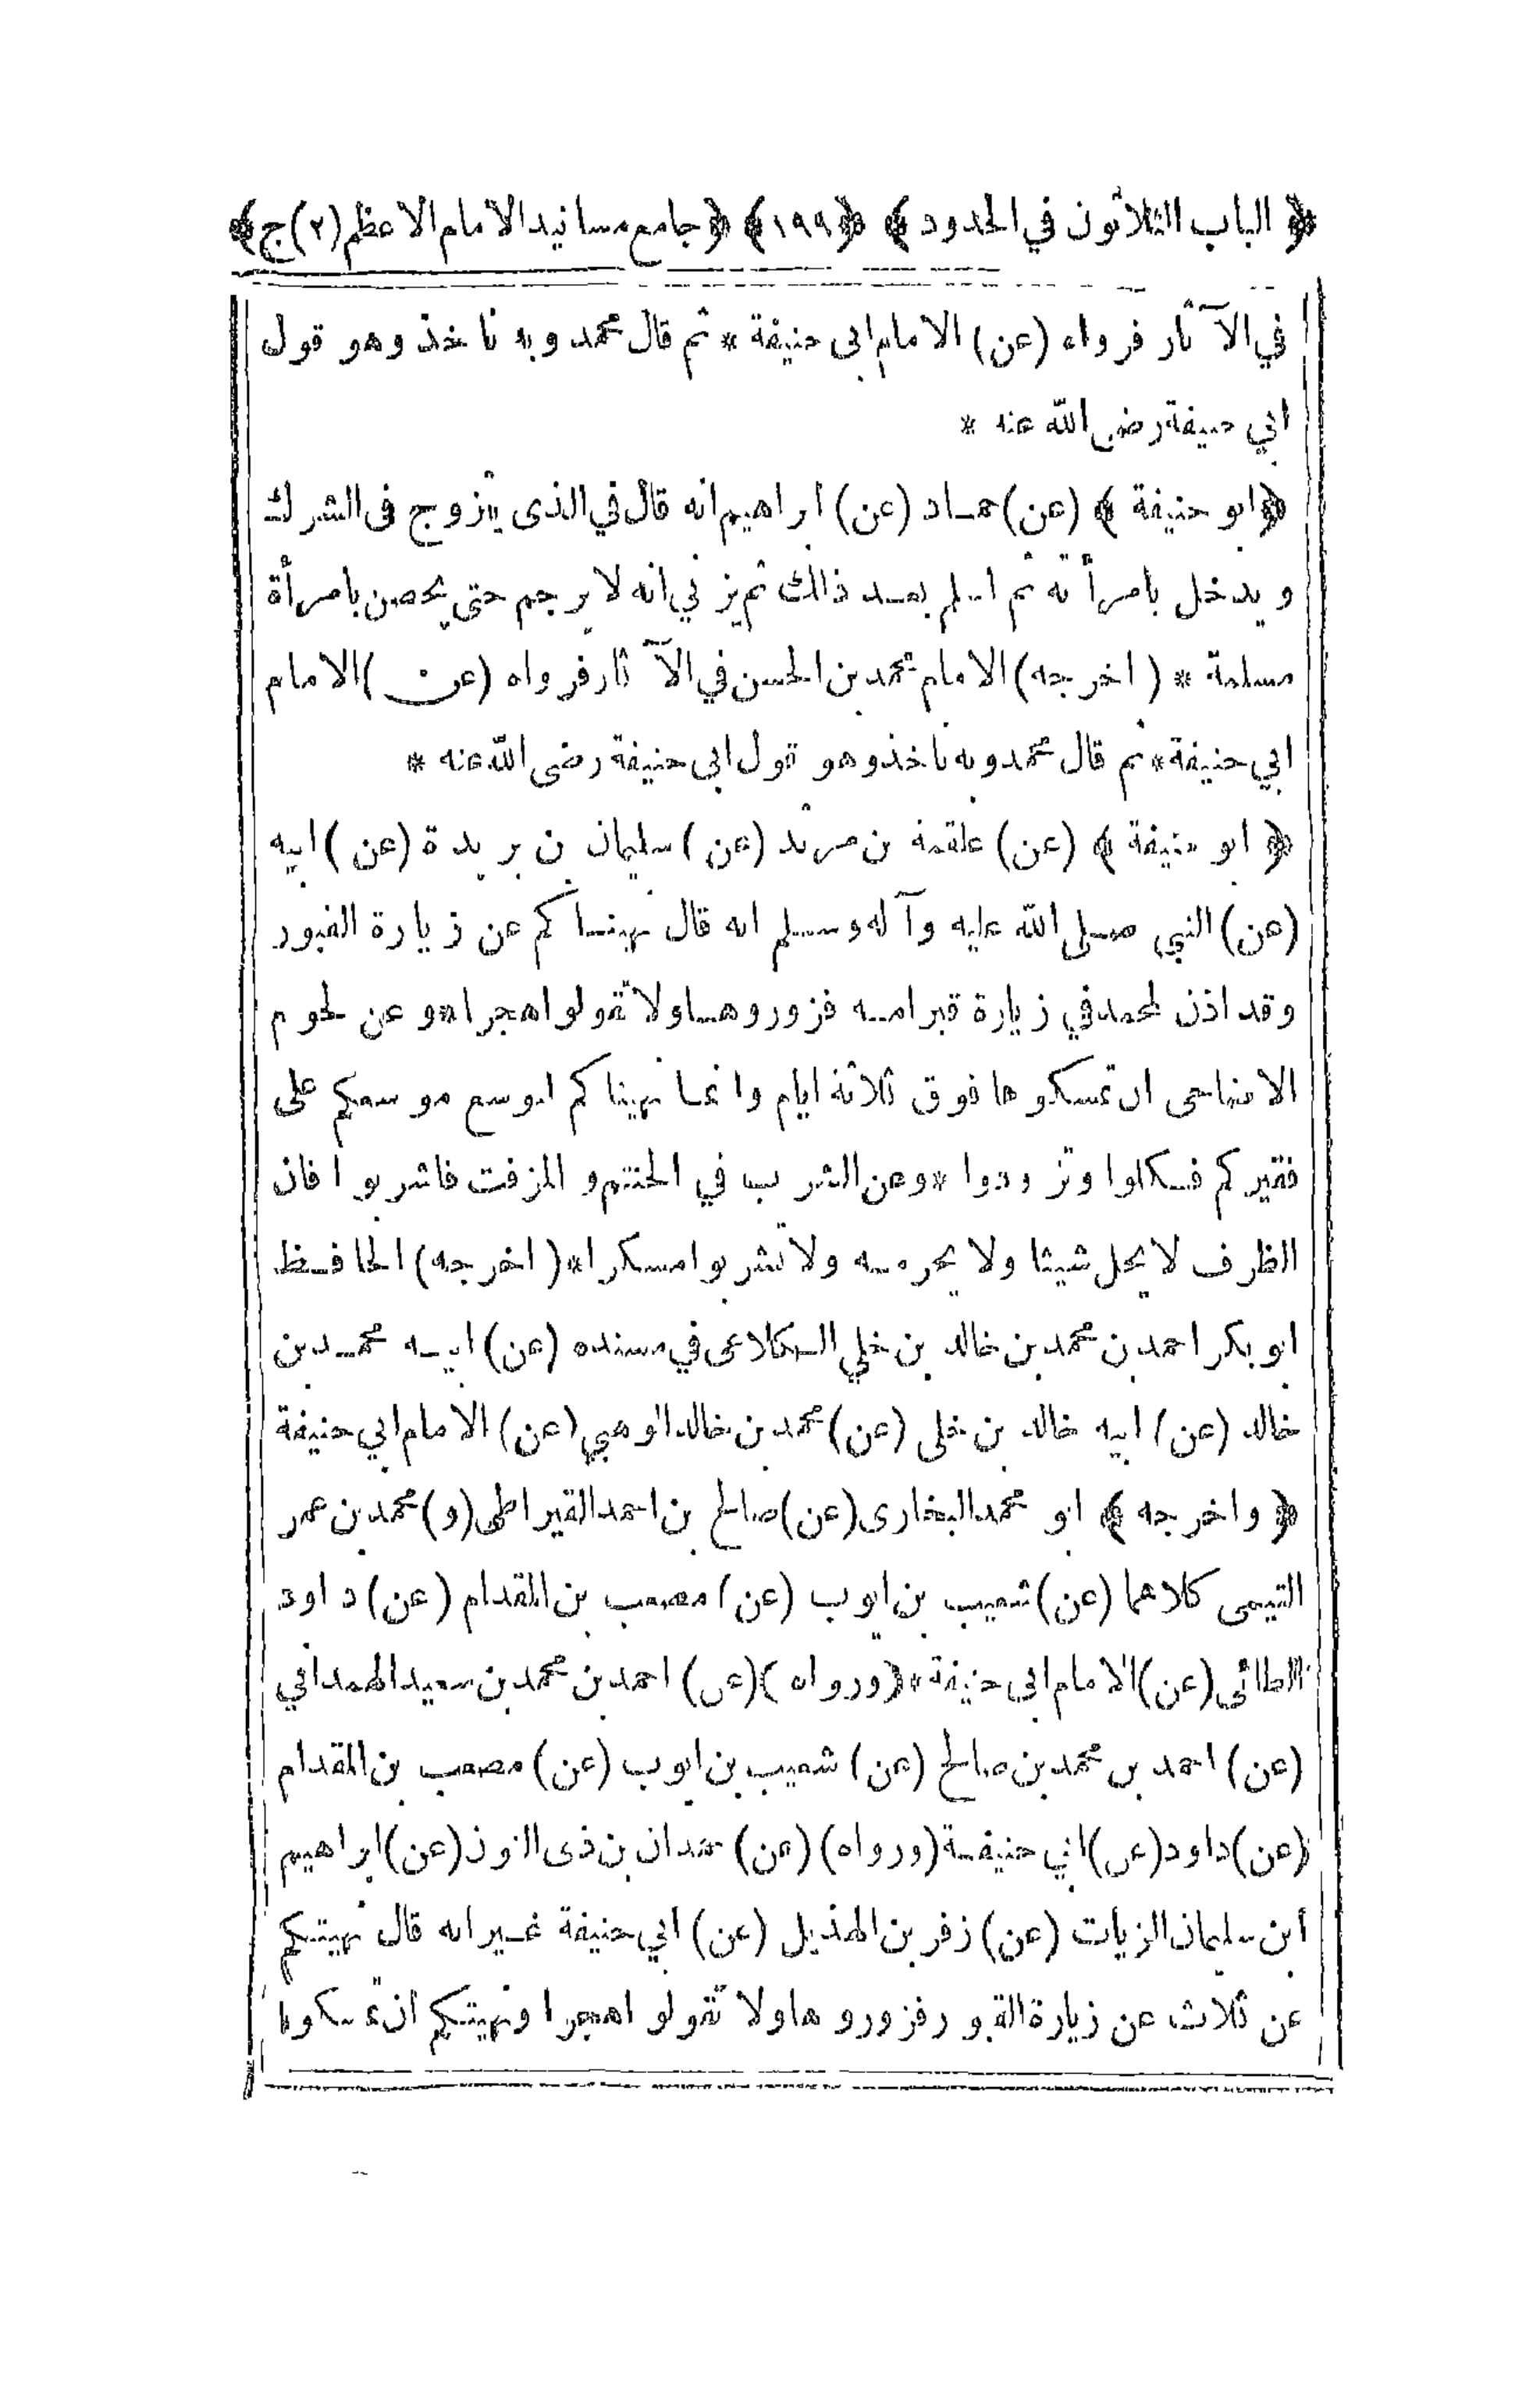 ﴿ الباب الثلاثون في الحدود ﴾ ﴿١٩٩﴾ ﴿جامع مسانيد الامام الاعظم (٢) ج﴾
في الآثار فرواه (عن) الامام ابى حنيفة * ثم قال محمد وبه ناخذ وهو قول
ابي حنيفة رضى الله عنه *
﴿ابو حنيفة ﴾ (عن) حماد (عن) ابراهيم انه قال في الذى يتزوج فى الشرك
ويدخل بامرأته ثم اسلم بعد ذالك ثم يزني انه لا يرجم حتى يحصن بامرأة
مسلمة * (اخرجه) الامام محمد بن الحسن في الآثار فرواه (عن) الامام
ابي حنيفة * ثم قال محمد وبه ناخذ وهو قول ابى حنيفة رضى الله عنه *
﴿ ابو حنيفة ﴾ (عن) علقمة بن مرثد (عن) سليمان بن بريدة (عن) ابيه
(عن) النبي صلى الله عليه وآله وسلم انه قال نهيناكم عن زيارة القبور
وقد اذن لمحمد في زيارة قبر امه فزوروها ولا تقولوا هجرا * وعن لحوم
الاضاحى ان تمسكوها فوق ثلاثة ايام وانما نهيناكم ليوسع موسعكم على
فقيركم فكلوا وتزودوا * وعن الشرب في الحنتم والمزفت فاشربوا فان
الظرف لا يحل شيئا ولا يحرمه ولا تشربوا مسكرا * (اخرجه) الحافظ
ابو بكر احمد بن محمد بن خالد بن خلي الكلاعى في مسنده (عن) ابيه محمد بن
خالد (عن) ابيه خالد بن خلى (عن) محمد بن خالد الوهبي (عن) الامام ابي حنيفة
﴿ واخرجه ﴾ ابو محمد البخارى (عن) صالح بن احمد القيراطى (و) محمد بن عمر
التيمى كلاهما (عن) شعيب بن ايوب (عن) مصعب بن المقدام (عن) داود
الطائى (عن) الامام ابى حنيفة * (ورواه) (عن) احمد بن محمد بن سعيد الهمداني
(عن) احمد بن محمد بن صالح (عن) شعيب بن ايوب (عن) مصعب بن المقدام
(عن) داود (عن) ابي حنيفة (ورواه) (عن) حمدان بن ذى النون (عن) ابراهيم
ابن سليمان الزيات (عن) زفر بن الهذيل (عن) ابي حنيفة غير انه قال نهيتكم
عن ثلاث عن زيارة القبور فزوروها ولا تقولوا هجرا ونهيتكم ان تمسكوا